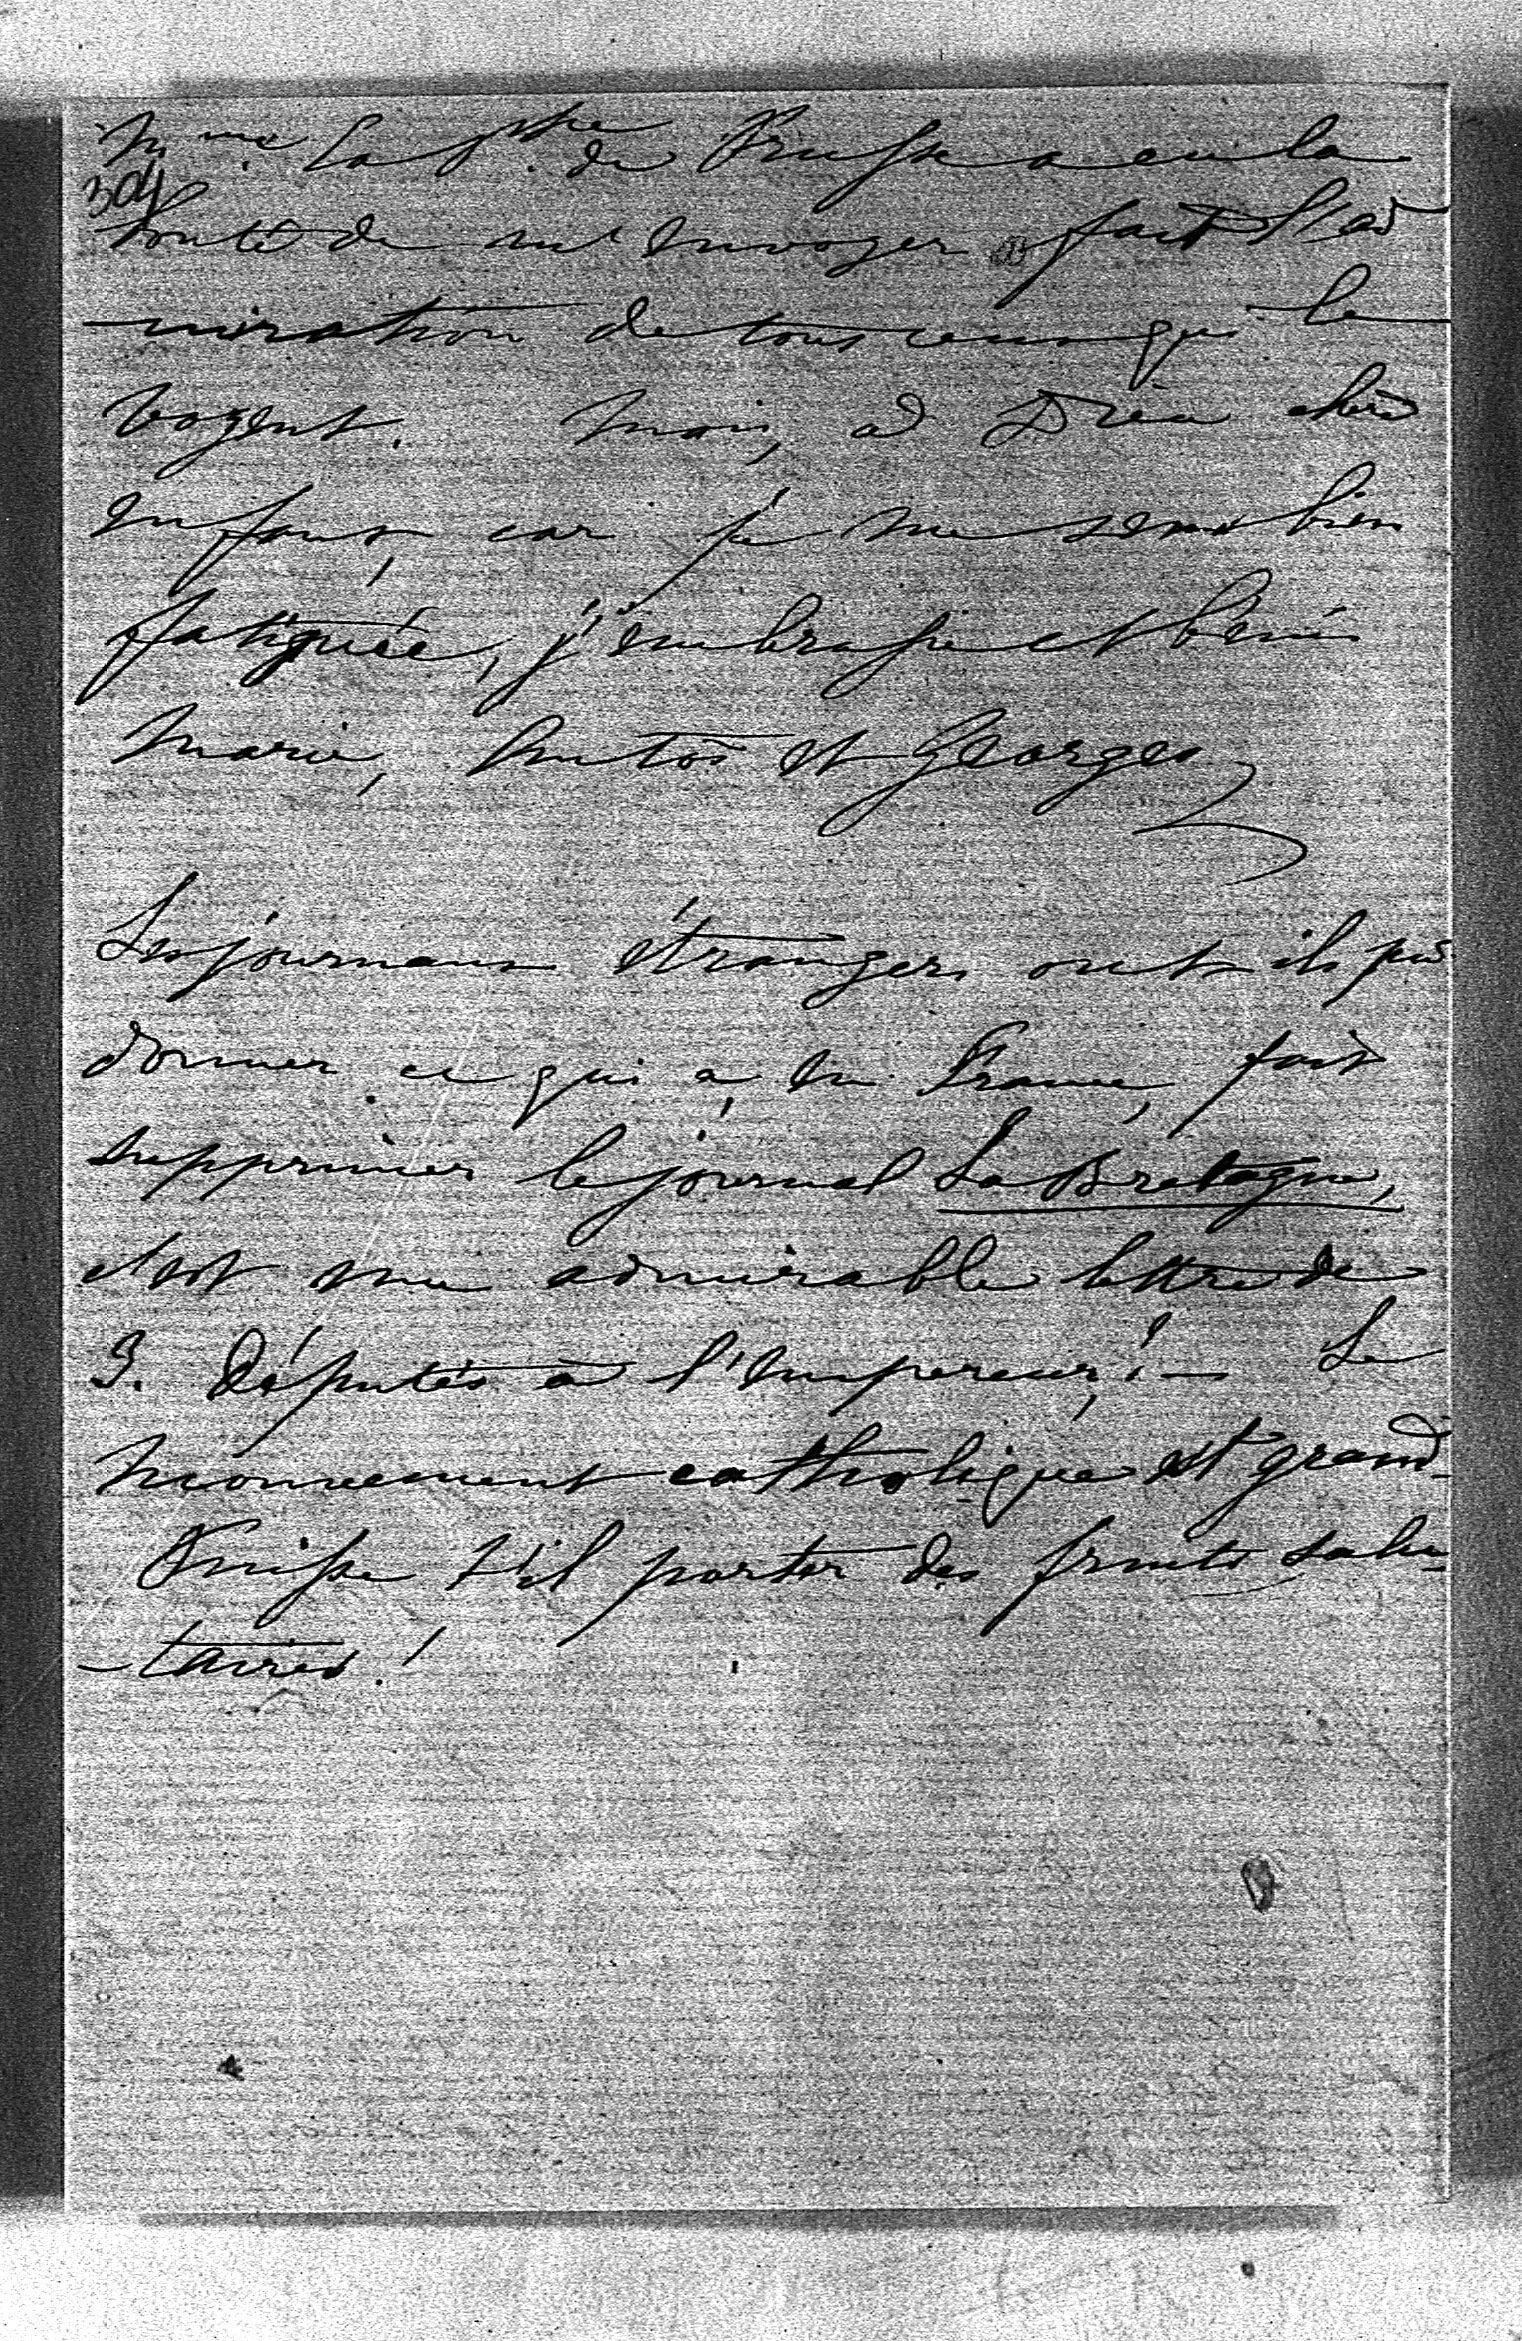 Mme La Psse de Prusse a eu la
304
bonté de m'envoyer fait l'ad
-miration de tous ceux qui le
voyent. Mais, à Dieu chère
enfant, car je me sens bien
fatiguée, j'embrasse et bénis
Marie, Antos et Georges
Les journaux étrangers ont ils pu
donner ce qui a, en France, fait
supprimer le journal La Bretagne,
c'est une admirable lettre de
3. Députés à l'Empereur! — Le
mouvement catholique est grand
Puisse t'il porter des fruits salu-
-taires!